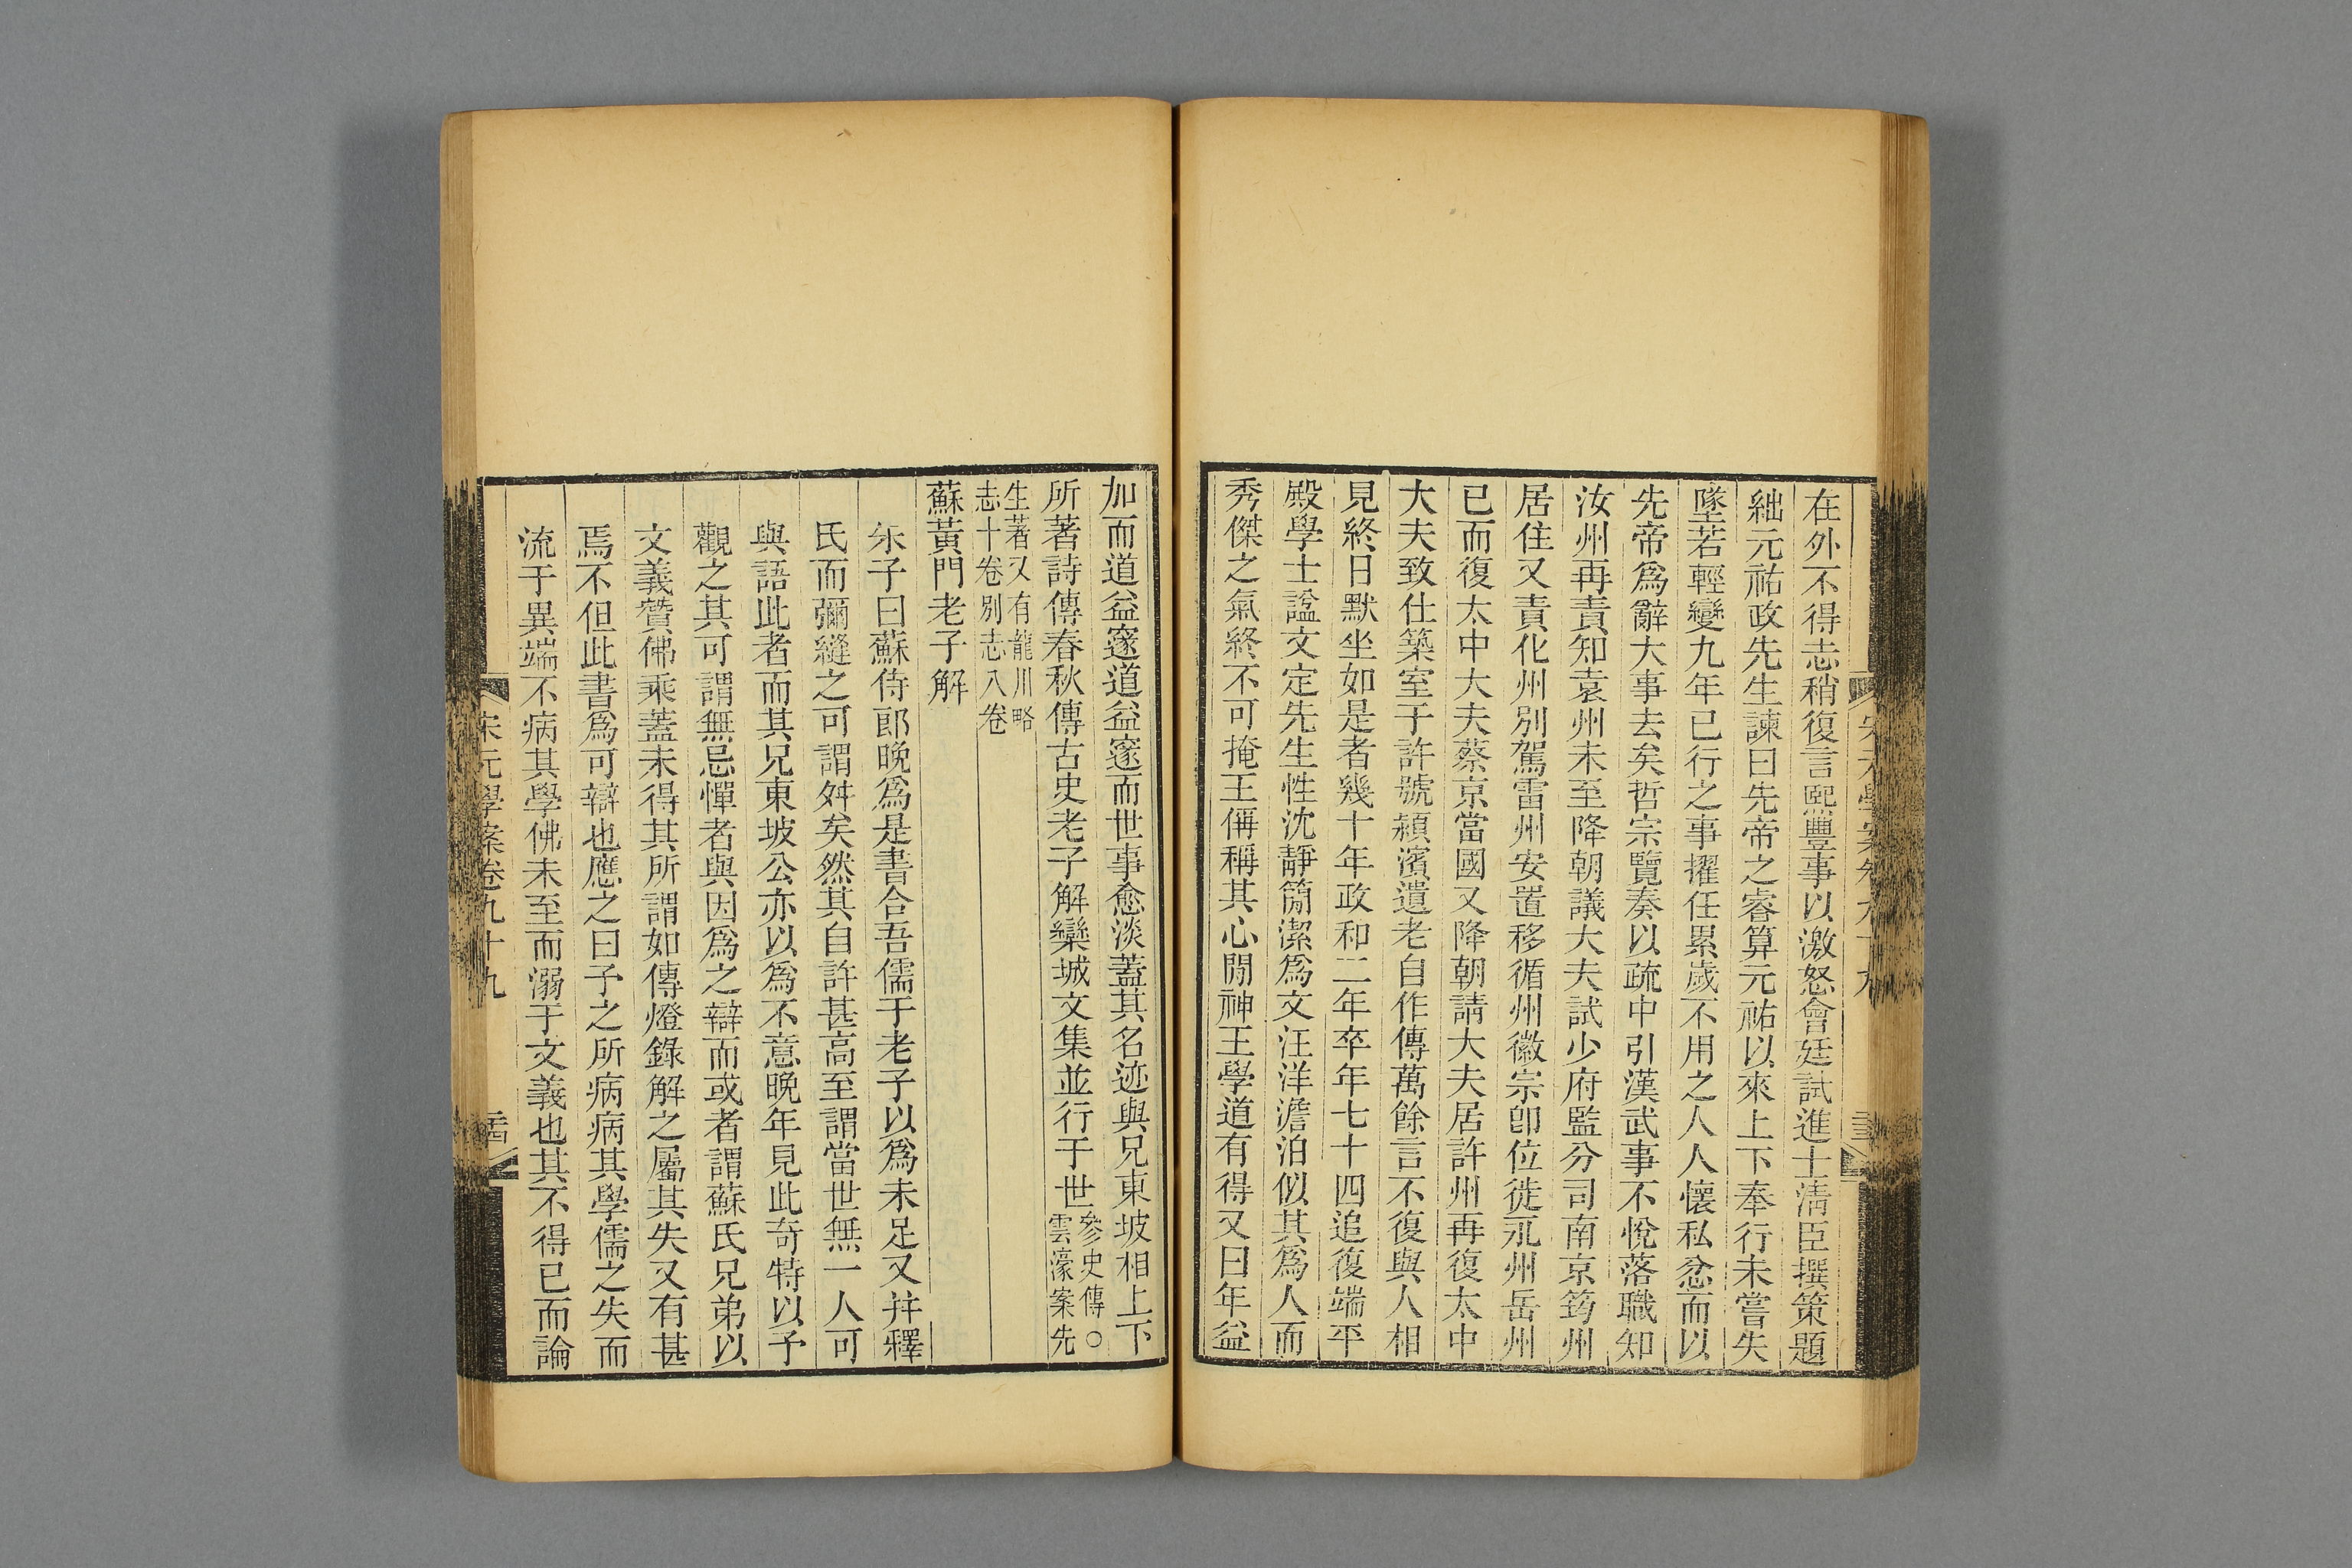 在外不得志稍復言熙豐事以激怒會廷試進士淸臣撰策題
絀元祐政先生諫曰先帝之睿算元祐以來上下奉行未嘗失
墜若輕變九年已行之事擢任累歲不用之人人懷私忿而以
先帝爲辭大事去矣哲宗覽奏以疏中引漢武事不悅落職知
汝州再責知袁州未至降朝議大夫試少府監分司南京筠州
居住又責化州別駕雷州安置移循州徽宗卽位徙永州岳州
已而復太中大夫蔡京當國又降朝請大夫居許州再復太中
大夫致仕築室于許號潁濱遺老自作傳萬餘言不復與人相
見終日默坐如是者幾十年政和二年卒年七十四追復端平
殿學士諡文定先生性沈靜簡潔爲文汪洋澹泊似其爲人而
秀傑之氣終不可掩王偁稱其心閒神王學道有得又曰年益
加而道益邃道益邃而世事愈淡蓋其名迹與兄東坡相上下
所著詩傳春秋傳古史老子解欒城文集並行于世參史傳○
雲濠案先
生著又有龍川略
志十卷別志八卷
蘇黃門老子解
朱子曰蘇侍郎晚爲是書合吾儒于老子以爲未足又并釋
氏而彌縫之可謂舛矣然其自許甚高至謂當世無一人可
與語此者而其兄東坡公亦以爲不意晚年見此奇特以予
觀之其可謂無忌憚者與因爲之辯而或者謂蘇氏兄弟以
文義贊佛乘蓋未得其所謂如傳燈錄解之屬其失又有甚
焉不但此書爲可辯也應之曰予之所病病其學儒之失而
流于異端不病其學佛未至而溺于文義也其不得已而論
宋元學案卷九十九